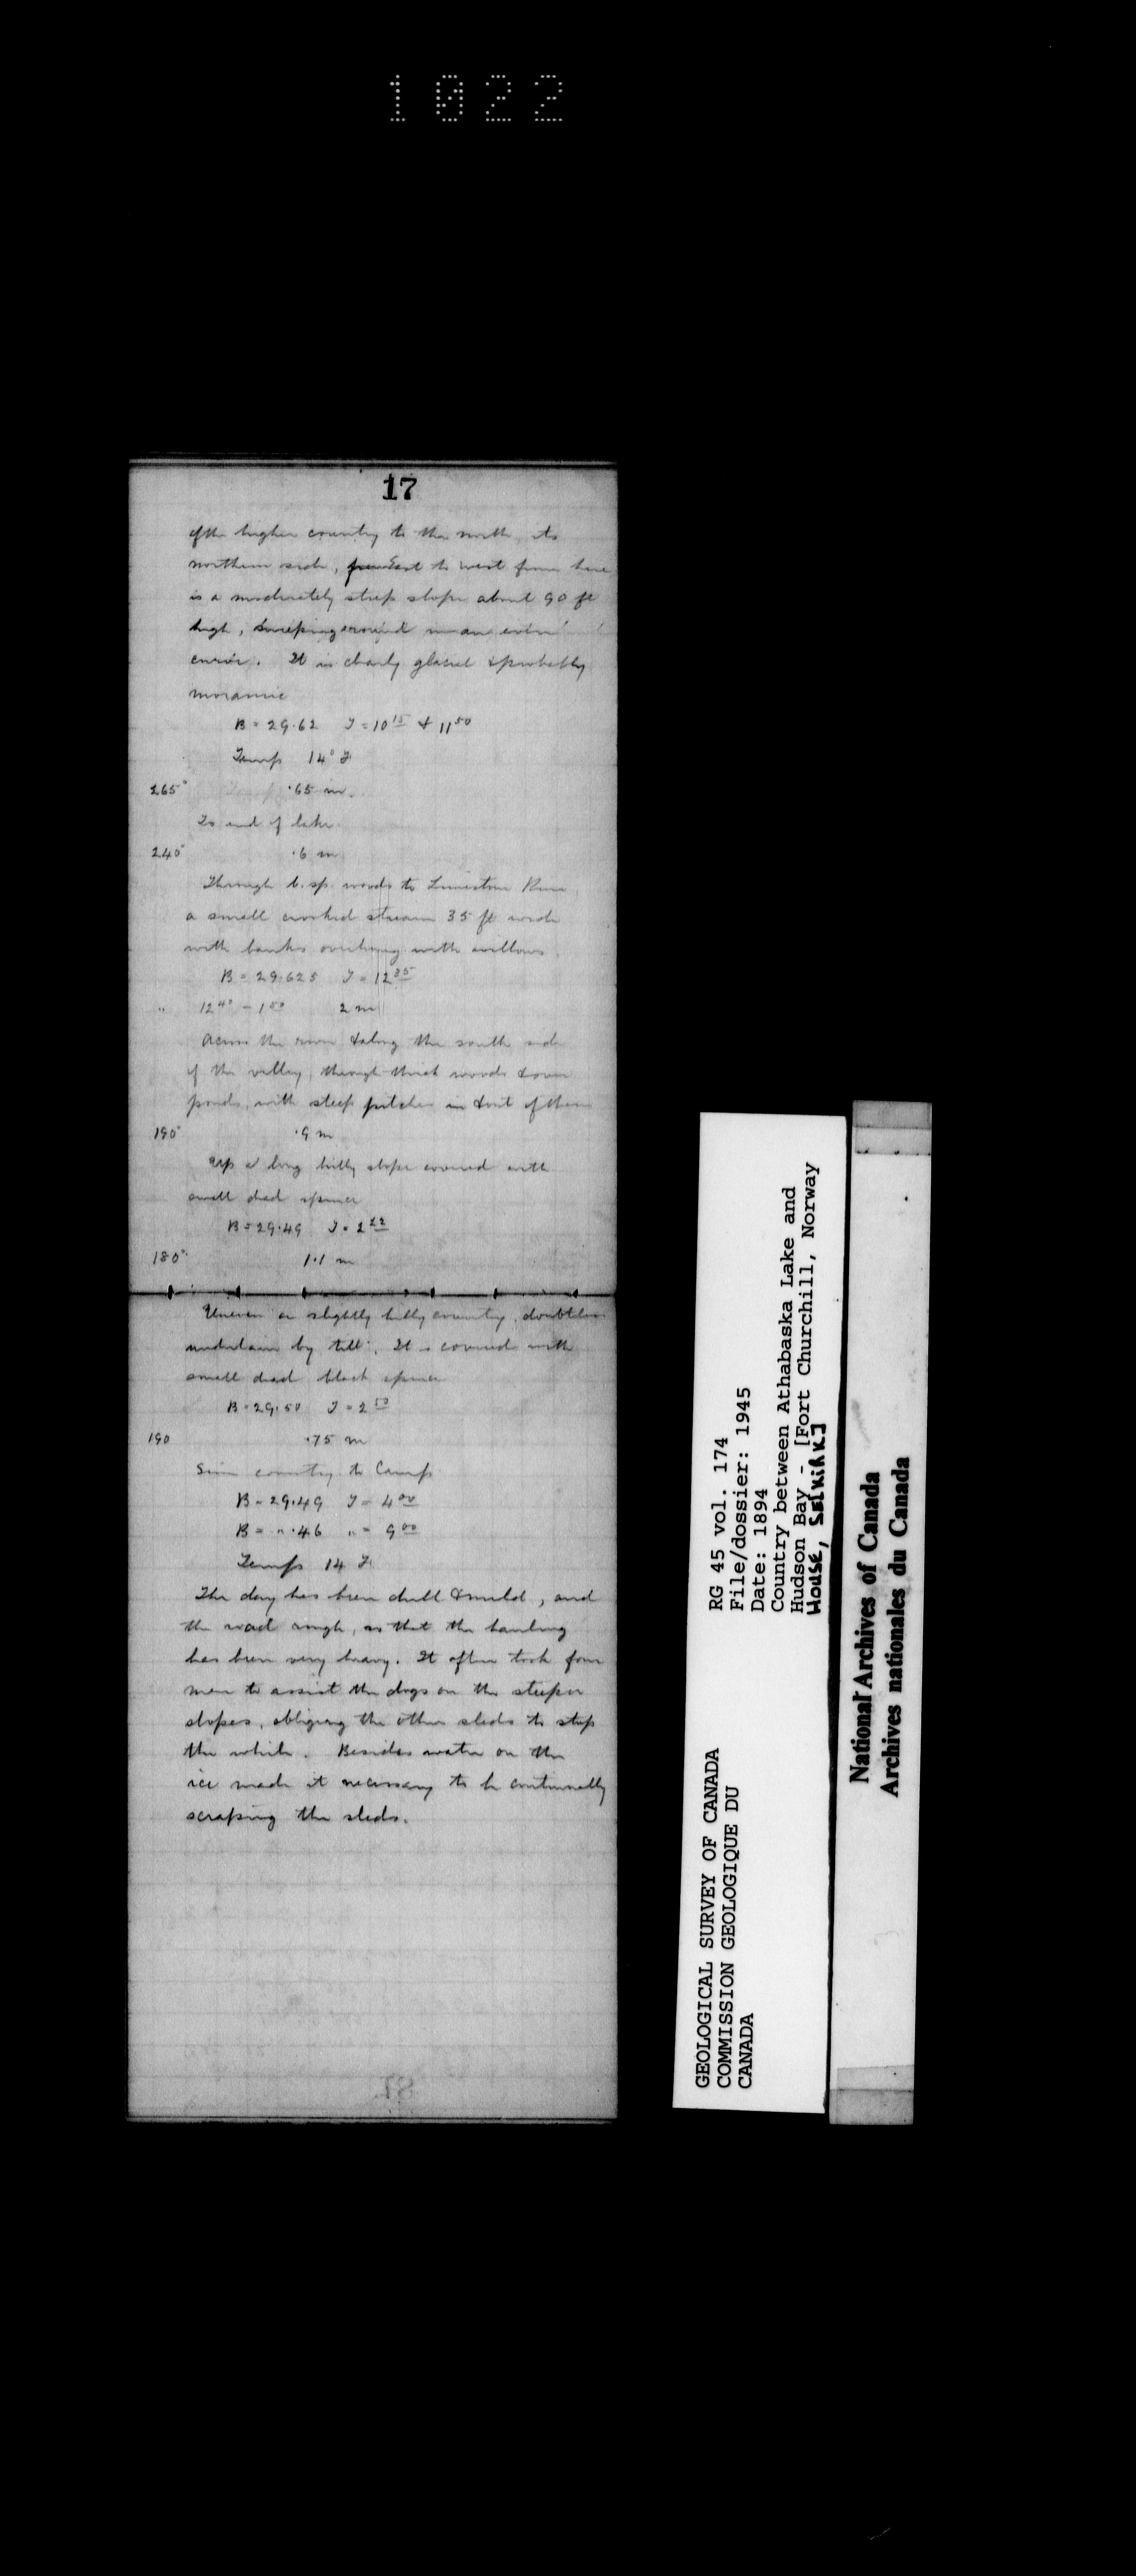 1022
17
of the higher country to the north, its
northern side, from East to west from here
is a moderately steep slope about 90 ft
high, sweeping around in an even
curve. It is clearly glacial & probably
morainic
B = 29.62 T = 10 15 & 11 50
Temp 14° F
265° .65 m.
To end of lake.
240° .6 m
Through b. sp. woods to Limestone River
a small crooked stream 35 ft wide
with banks overhung with willows.
B = 29.625 T = 12 35
" 12 40 - 1 50 2 m
Across the river & along the south side
of the valley, through thick woods & over
ponds, with steep pitches in & out of them
190° .9 m
Up a long hilly slope covered with
small dead spruce
B = 29.49 T = 2 22
180° 1.1 m
Uneven or slightly hilly country, doubtless
underlain by till. It is covered with
small dead black spruce
B = 29.50 T = 2 50
190 .75 m
Sim country to Camp.
B = 29.49 T = 4 00
B = " .46 " = 9 00
Temp 14 F.
The day has been dull & mild, and
the road rough, so that the hauling
has been very heavy. It often took four
men to assist the dogs on the steeper
slopes, obliging the other sleds to stop
the while. Besides water on the
ice made it necessary to be continually
scraping the sleds.
GEOLOGICAL SURVEY OF CANADA
COMMISSION GEOLOGIQUE DU
CANADA
RG 45 vol. 174
File/dossier: 1945
Date: 1894
Country between Athabaska Lake and
Hudson Bay - [Fort Churchill, Norway
House, Selkirk]
National Archives of Canada
Archives nationales du Canada